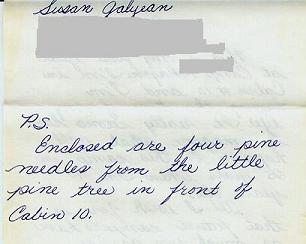 Susan Galyean
P.S.
Enclosed are four pine
needles from the little
pine tree in front of
Cabin 10.